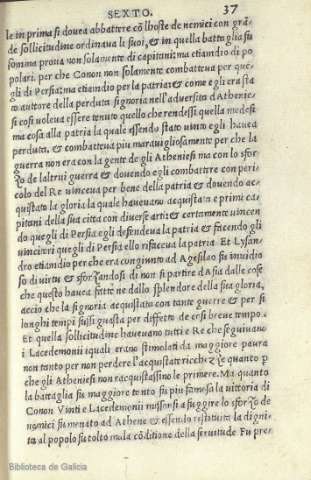 SEXTO. 37
le in prima si douea abbattere cõ lhoste de nemici con grã
de sollicitudine ordinaua li suoi, & in quella battaglia fu
somma proua non solamente di capitani: ma etiamdio di po
polari. per che Conon non solamente combatteua per que
gli di Persia: ma etiamdio per la patria: & come egli era sta
to autore della perduta signoria nell'aduersita d'Athenie
si cosi voleua essere tenuto quello che rendessi quella medesi
ma cosa alla patria la quale essendo stato uinto egli hauea
perduta, & combatteua piu marauigliosamente per che la
guerra non era con la gente degli Atheniesi ma con lo sfor
zo de laltrui guerra & douendo egli combattere con peri
colo del Re uinceua per bene della patria & douendo ac
quistato la gloria la quale haueuano acquistata e primi ca
pitani della sua citta con diuerse arti: & certamente uincen
do quegli di Persia egli defendeua la patria & facendo gli
uincitori quegli di Persia ello rifaceua la patria. Et Lysan
dro etiamdio per che era congiunto ad Agesilao fu inuidio
so di uirtu & sforzandosi di non si partire d'Asia dalle cose
che questo hauea fatte ne dallo splendore della sua gloria,
accio che la signoria acquistata con tante guerre & per si
longhi tempi fussi guasta per diffetto de ersi breue tempo.
Et quella sollicitudine haueuano tutti e Re che seguiuano
i Lacedemonii iquali erano stimolati da maggiore paura
non tanto per non perdere l'acquistate ricchezze quanto p
che gli Atheniesi non racquistassino le primere. Ma quanto
la battaglia fu maggiore tanto fu piu famosa la uittoria di
Conon Vinti e Lacedemonii missorsi a fuggire lo sforzo de
nemici fu menato ad Athene & essendo restituita la digni
ta al popolo fu tolto uia la cõditione della seruitude Fu pre-
Biblioteca de Galicia